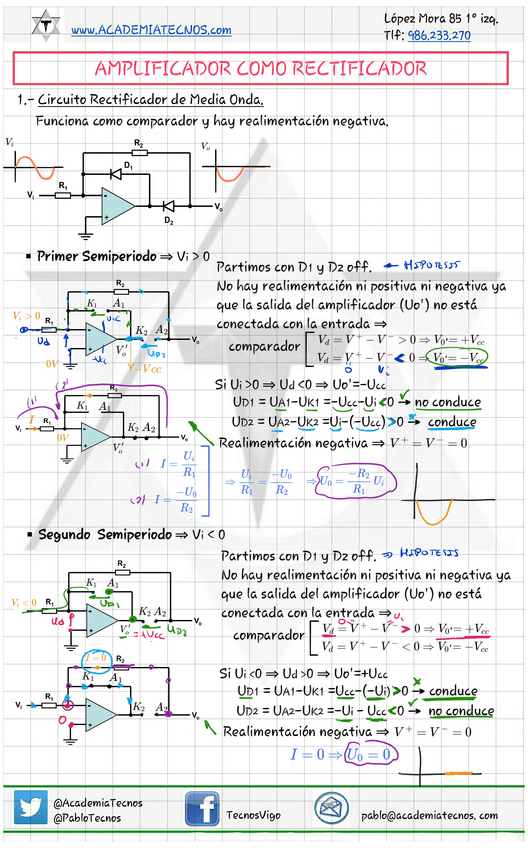 www.ACADEMIATECNOS.com
López Mora 85 1º izq.
Tlf: 986.233.270
AMPLIFICADOR COMO RECTIFICADOR
1.- Circuito Rectificador de Media Onda.
Funciona como comparador y hay realimentación negativa.
Vi
R2
Vo
D1
R1
Vi
Vo
D2
▪ Primer Semiperiodo ⇒ Vi > 0
Partimos con D1 y D2 off. ← HIPOTESIS
No hay realimentación ni positiva ni negativa ya
que la salida del amplificador (Uo') no está
conectada con la entrada ⇒
comparador [ Vd = V+ − V− > 0 ⇒ V0' = +Vcc
Vd = V+ − V− < 0 ⇒ V0' = −Vcc
0 Vi
R2
K1 A1
Vi > 0 R1
Ud
K2 A2
Vo
UD2
0V
Vo'
−Vcc
Si Ui >0 ⇒ Ud <0 ⇒ Uo'=-Ucc
UD1 = UA1-UK1 =-Ucc-Ui <0 → no conduce
UD2 = UA2-UK2 =Ui-(-Ucc) >0 → conduce
Realimentación negativa ⇒ V+ = V− = 0
(1) (2)
R2
I
K1 A1
Vi R1
0V
K2 A2
Vo
Vo'
(1) I = Ui/R1
(2) I = −U0/R2
⇒ Ui/R1 = −U0/R2 ⇒ U0 = −R2/R1 Ui
▪ Segundo Semiperiodo ⇒ Vi < 0
Partimos con D1 y D2 off. ⇒ HIPOTESIS
No hay realimentación ni positiva ni negativa ya
que la salida del amplificador (Uo') no está
conectada con la entrada ⇒
comparador [ Vd = V+ − V− > 0 ⇒ V0' = +Vcc
Vd = V+ − V− < 0 ⇒ V0' = −Vcc
R2
K1 A1
Vi < 0 R1
UD1
Ud
K2 A2
Vo
Vo' =+Ucc UD2
Si Ui <0 ⇒ Ud >0 ⇒ Uo'=+Ucc
UD1 = UA1-UK1 =Ucc-(-Ui) >0 → conduce
UD2 = UA2-UK2 =-Ui - Ucc <0 → no conduce
Realimentación negativa ⇒ V+ = V− = 0
I = 0 ⇒ U0 = 0
I = 0
R2
K1 A1
Vi R1
0
K2 A2
Vo
@AcademiaTecnos
@PabloTecnos
TecnosVigo
pablo@academiatecnos.com